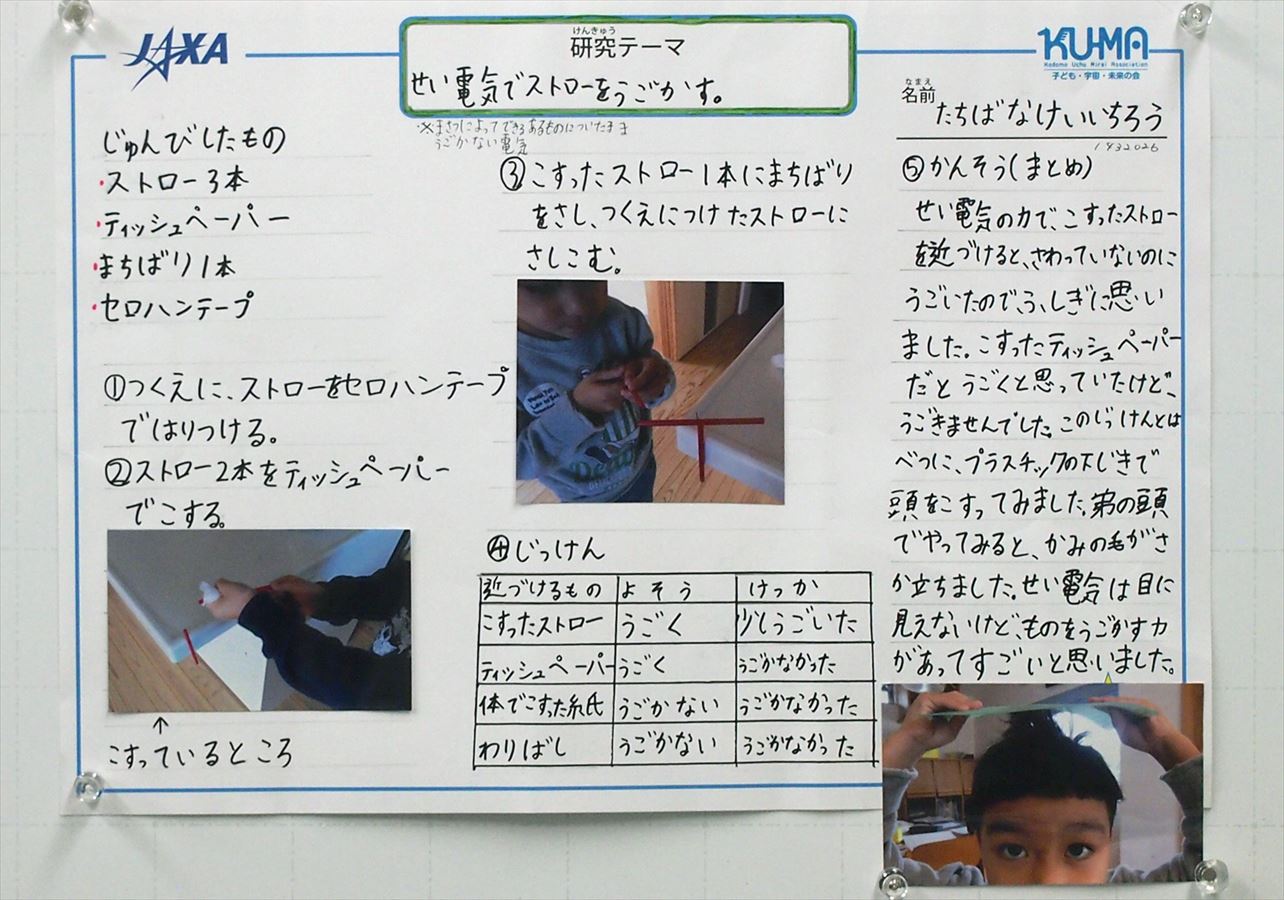 JAXA
けんきゅう
研究テーマ
せい電気でストローをうごかす。
※まさつによってできるあるものについたまま
うごかない電気
KU-MA
Kodomo Uchu Mirai Association
子ども・宇宙・未来の会
なまえ
名前
たちばなけいいちろう
1432026
じゅんびしたもの
・ストロー3本
・ティッシュペーパー
・まちばり1本
・セロハンテープ
①つくえに、ストローをセロハンテープ
ではりつける。
②ストロー2本をティッシュペーパー
でこする。
↑
こすっているところ
③こすったストロー1本にまちばり
をさし、つくえにつけたストローに
さしこむ。
④じっけん
近づけるもの よそう けっか
こすったストロー うごく 少しうごいた
ティッシュペーパー うごく うごかなかった
体でこすった紙 うごかない うごかなかった
わりばし うごかない うごかなかった
⑤かんそう(まとめ)
せい電気の力で、こすったストロー
を近づけると、さわっていないのに
うごいたのでふしぎに思い
ました。こすったティッシュペーパー
だとうごくと思っていたけど、
うごきませんでした。このじっけんとは
べつに、プラスチックの下じきで
頭をこすってみました。弟の頭
でやってみると、かみの毛がさ
か立ちました。せい電気は目に
見えないけど、ものをうごかす力
があってすごいと思いました。